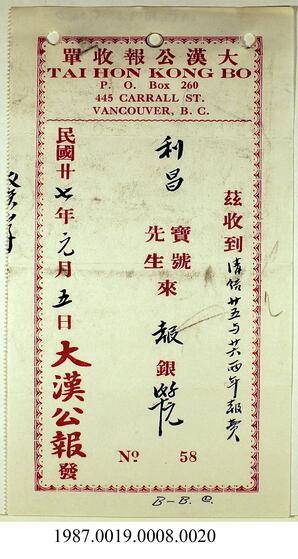 大漢公報收單
TAI HON KONG BO
P. O. Box 260
445 CARRALL ST.
VANCOUVER, B. C.
茲收到清結廿五与廿六兩年報費
利昌 寶號 先生 來 報銀
民國廿七年元月五日 大漢公報發
No 58
B-B. ©.
1987.0019.0008.0020